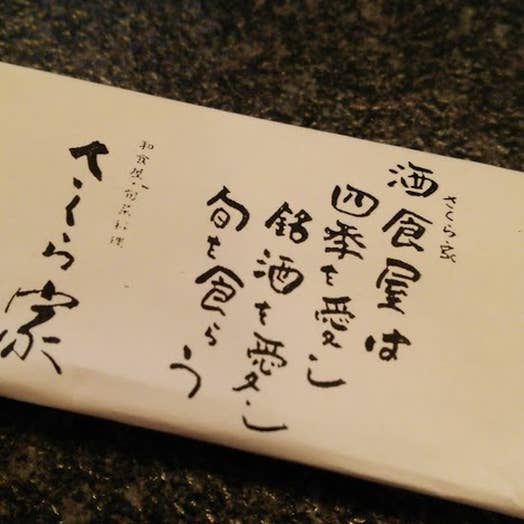 さくら家
酒食屋は
四季を愛し
銘酒を愛し
旬を食らう
和食屋・旬菜料理
さくら家